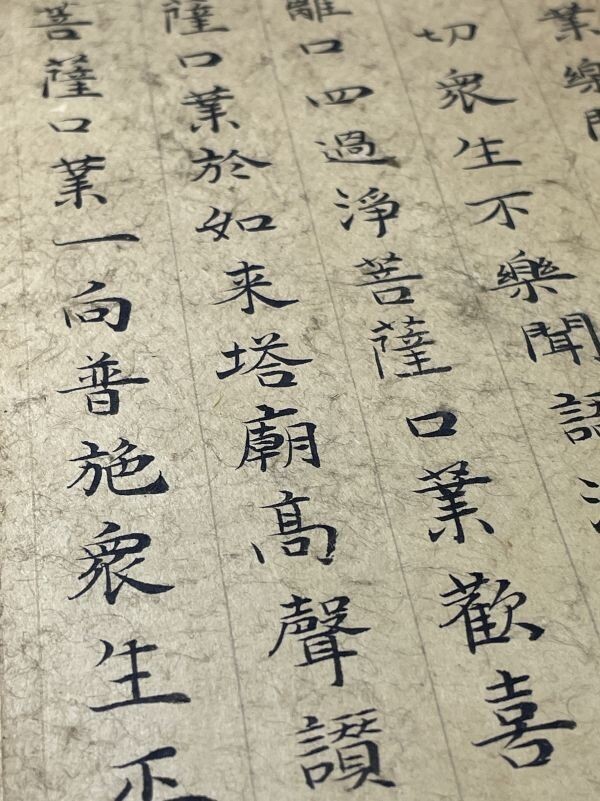 業
切衆生不樂聞語
離口四過淨菩薩口業歡喜
薩口業於如来塔廟髙聲讃
菩薩口業一向普施衆生正